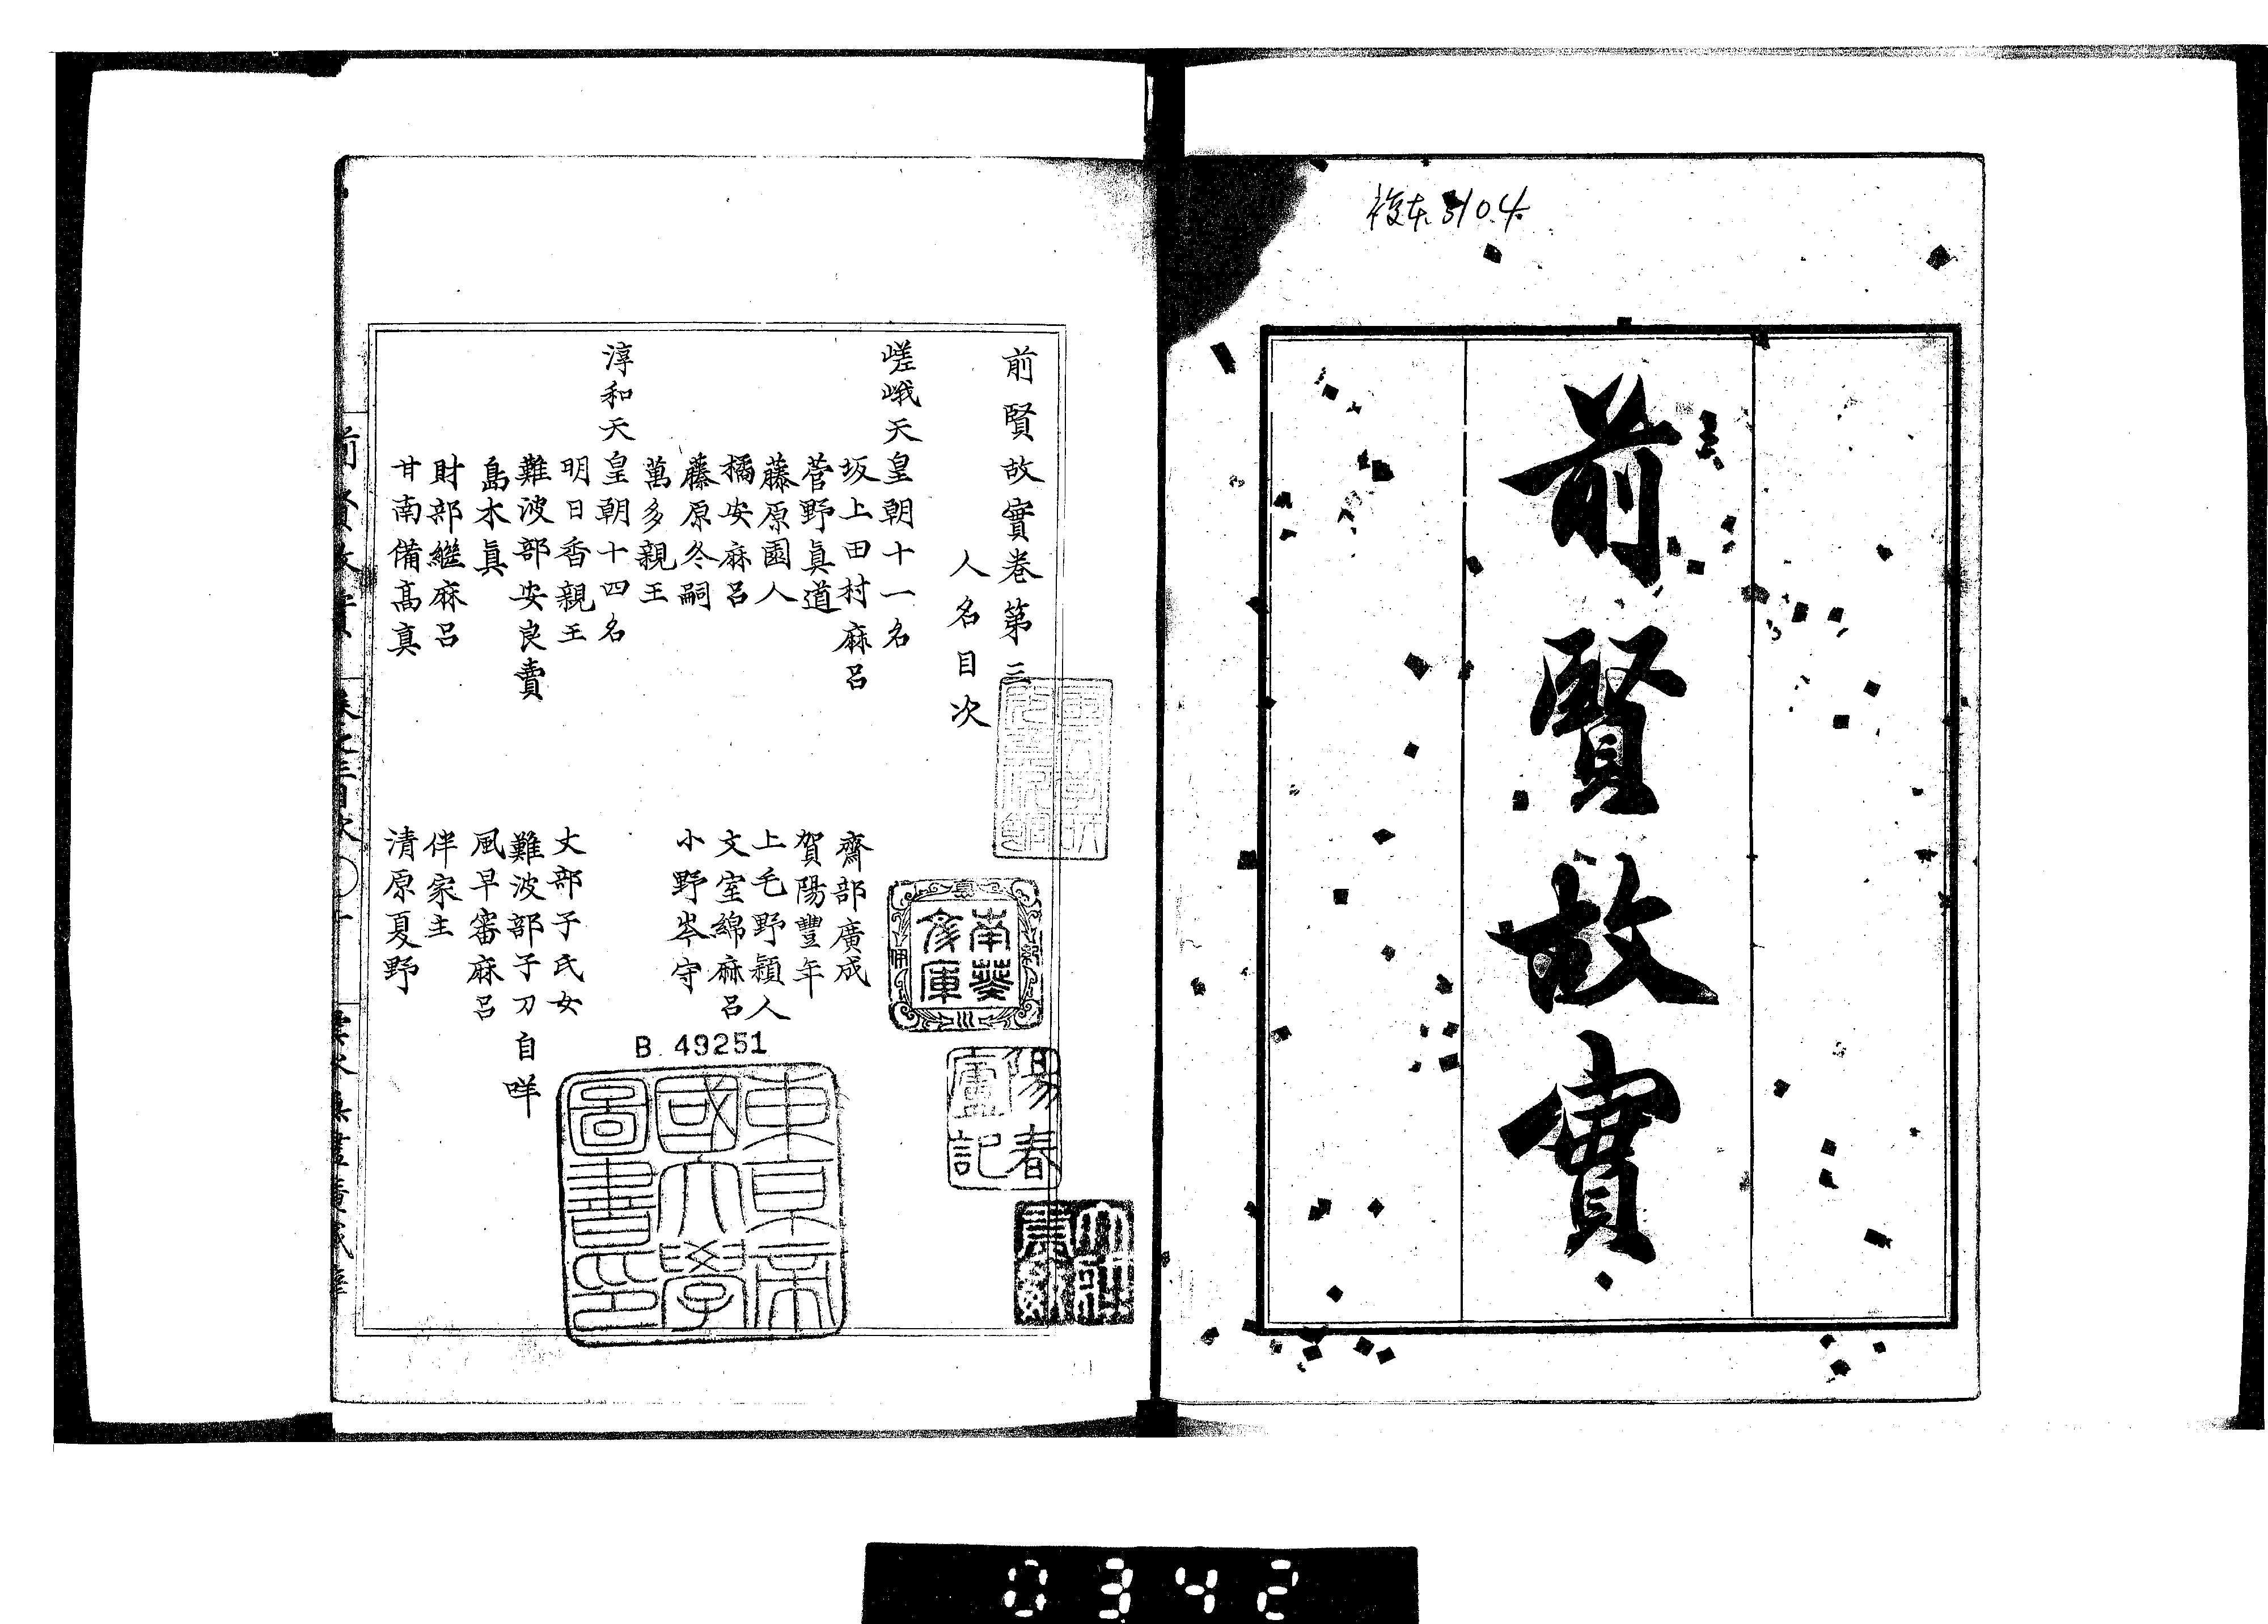 複本 310.4
前賢故實
三
前賢故實卷第三
人名目次
嵯峨天皇朝十一名
坂上田村麻呂
齋部廣成
菅野眞道
賀陽豐年
藤原園人
上毛野頴人
橘安麻呂
文室綿麻呂
藤原冬嗣
小野岑守
萬多親王
淳和天皇朝十四名
明日香親王
丈部子氏女
難波部安良賣
難波部子刀自咩
島木眞
風早審麻呂
財部繼麻呂
伴家主
甘南備高真
清原夏野
南葵
文庫
陽春
廬記
B 49251
東京帝
國大學
圖書印
0342